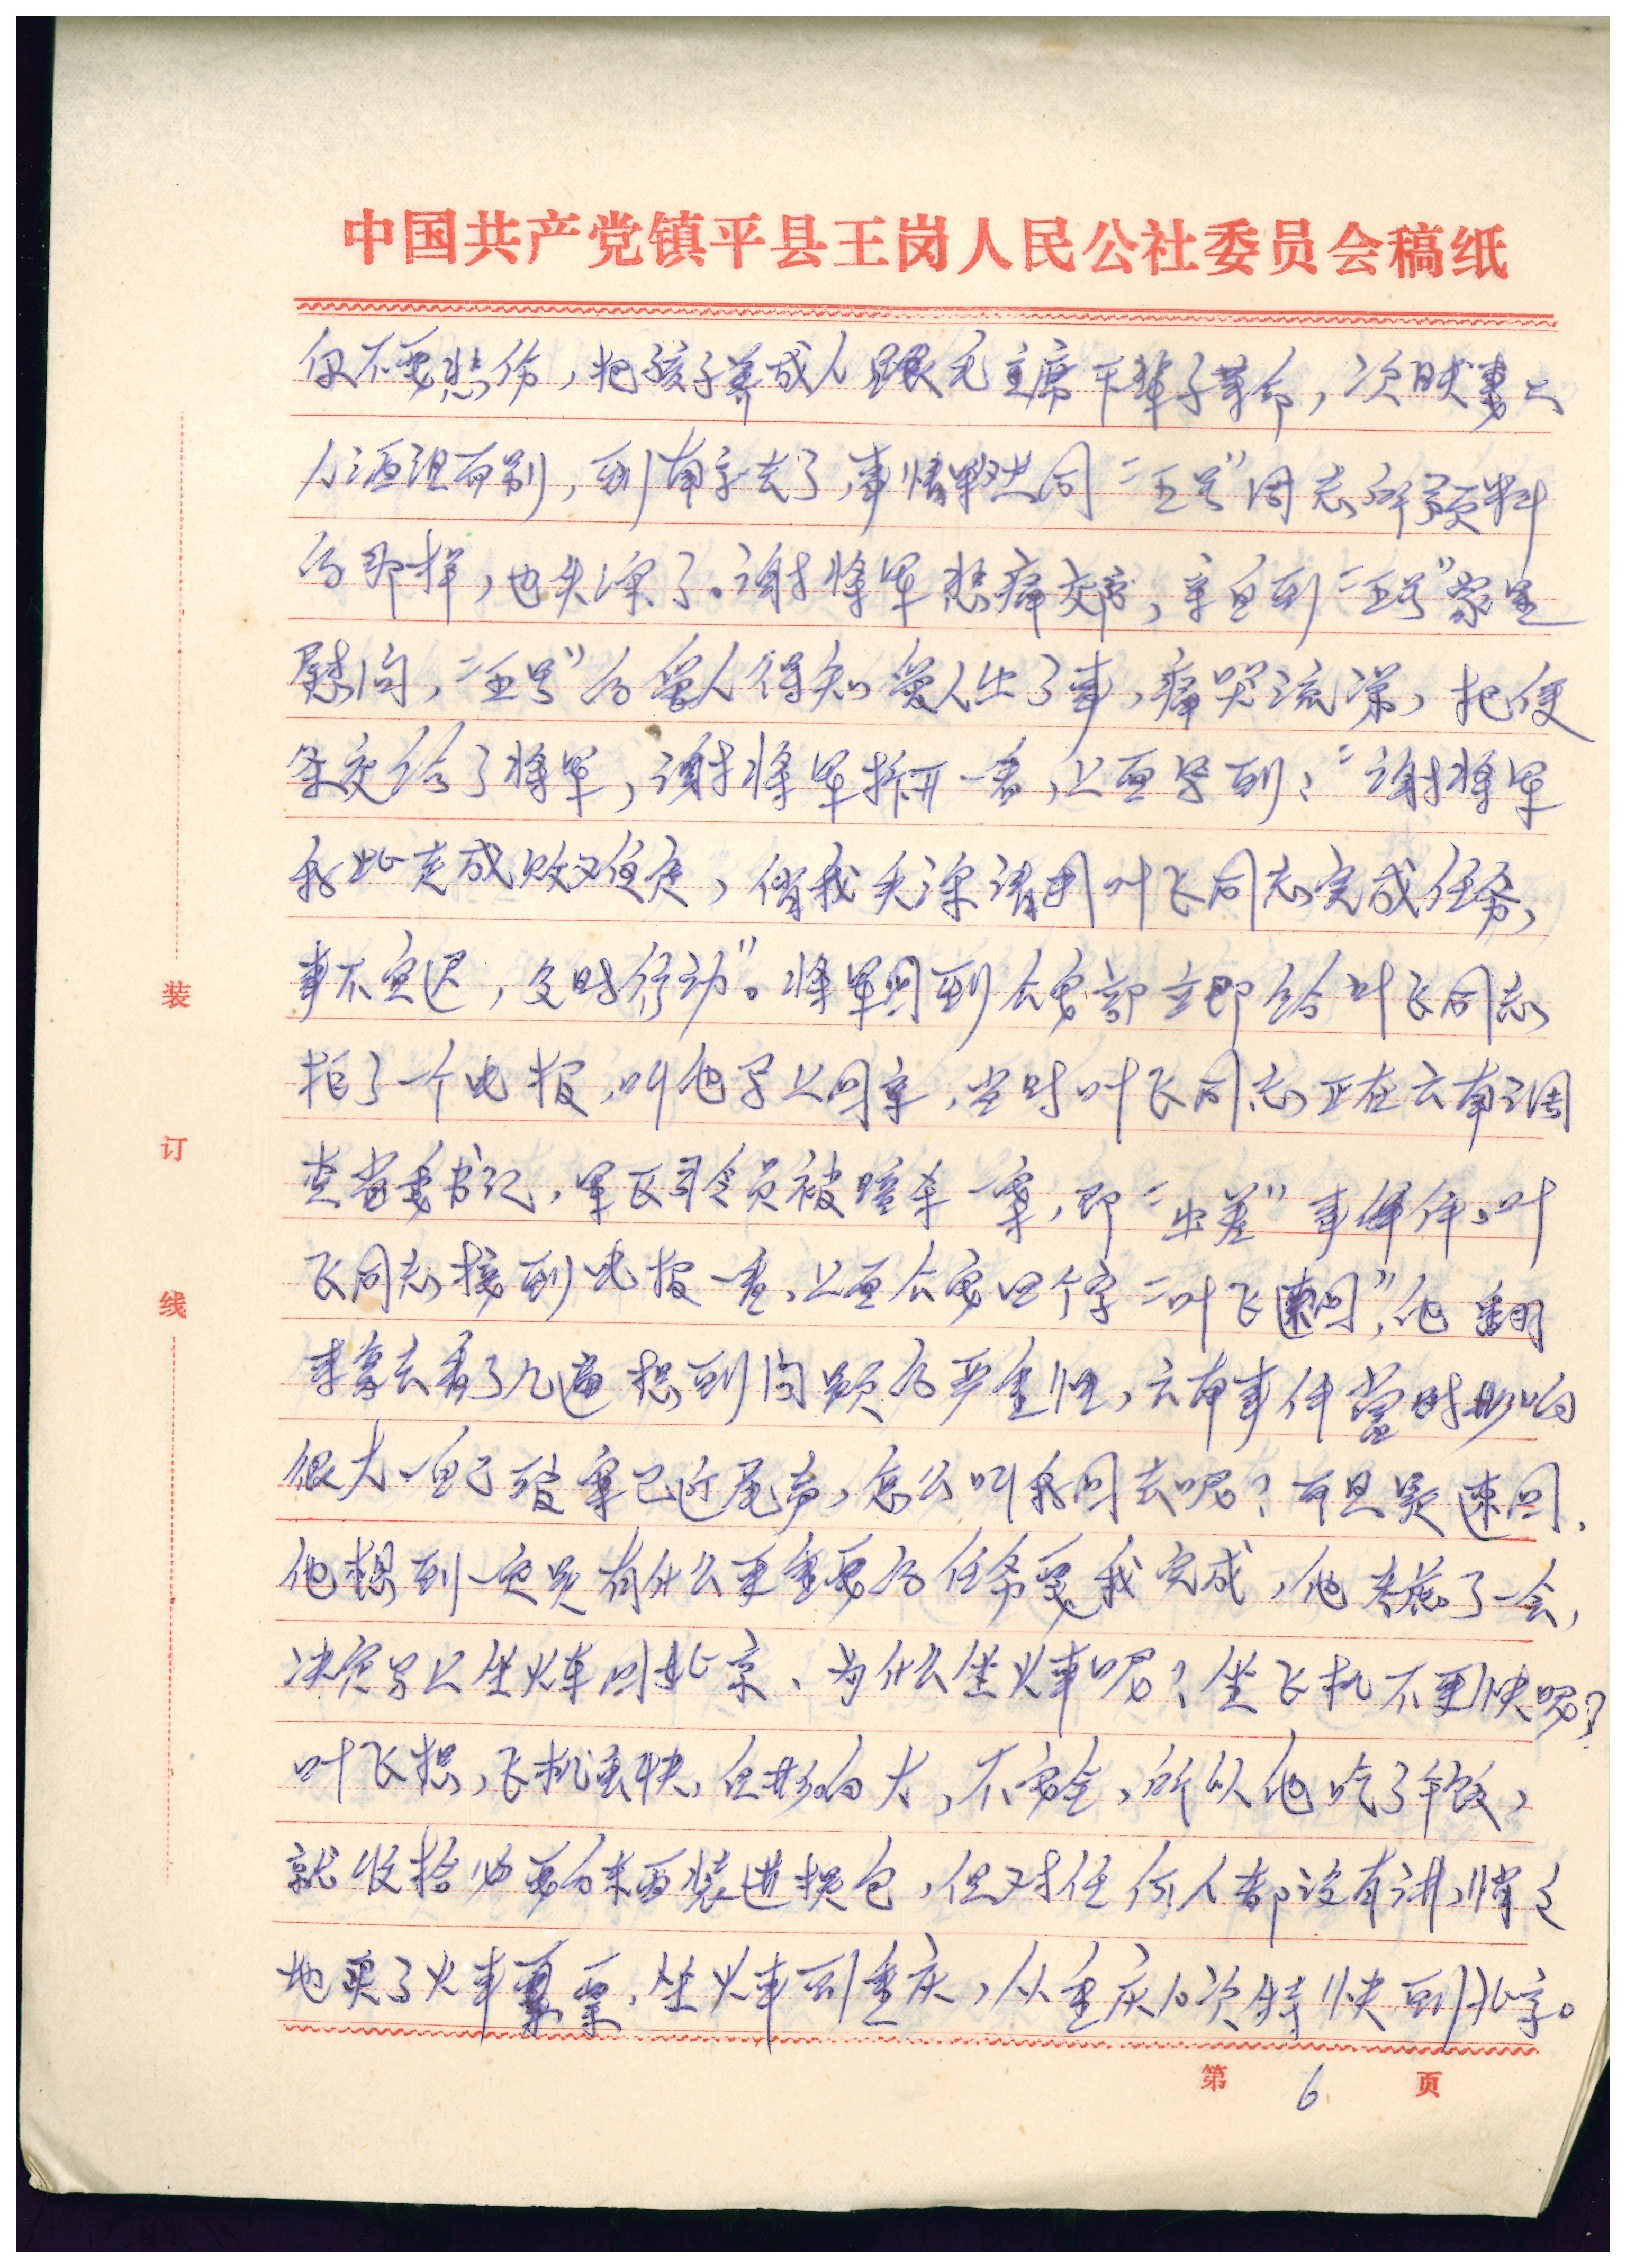 中国共产党镇平县王岗人民公社委员会稿纸
你不要悲伤，把孩子养成人跟毛主席干辈子革命，次日夫妻二
人洒泪而别，到南京去了，事情果然同“五号”同志所预料
的那样，也失踪了。谢将军悲痛交, 亲自到“五号”家里
慰问，“五号”的爱人得知爱人出了事，痛哭流涕，把便
条交给了将军，谢将军拆开一看，上面写到：“谢将军
我此去成败难定，倘我失踪请用叶飞同志完成任务，
事不宜迟，及时行动”。将军回到公安部立即给叶飞同志
拍了一个电报，叫他马上回京，当时叶飞同志正在云南调
查省委书记，军区司令员被暗杀一案，即“出差”事件，叶
飞同志接到电报一看，上面公安四个字“叶飞速回”，他翻
来复去看了几遍想到问题的严重性，云南事件当时影响
很大，自己破案已近尾声，怎么叫我回去呢？而且是速回，
他想到一定是有什么更重要的任务要我完成，他考虑了一会，
决定马上坐火车回北京、为什么坐火车呢？坐飞机不更快呢？
叶飞想，飞机虽快，但影响大，不安全，所以他吃了午饭，
就收拾必要的东西装进提包，但对任何人都没有讲，悄悄
地买了火车票，坐火车到重庆，从重庆10次特快到北京。
装
订
线
第 6 页